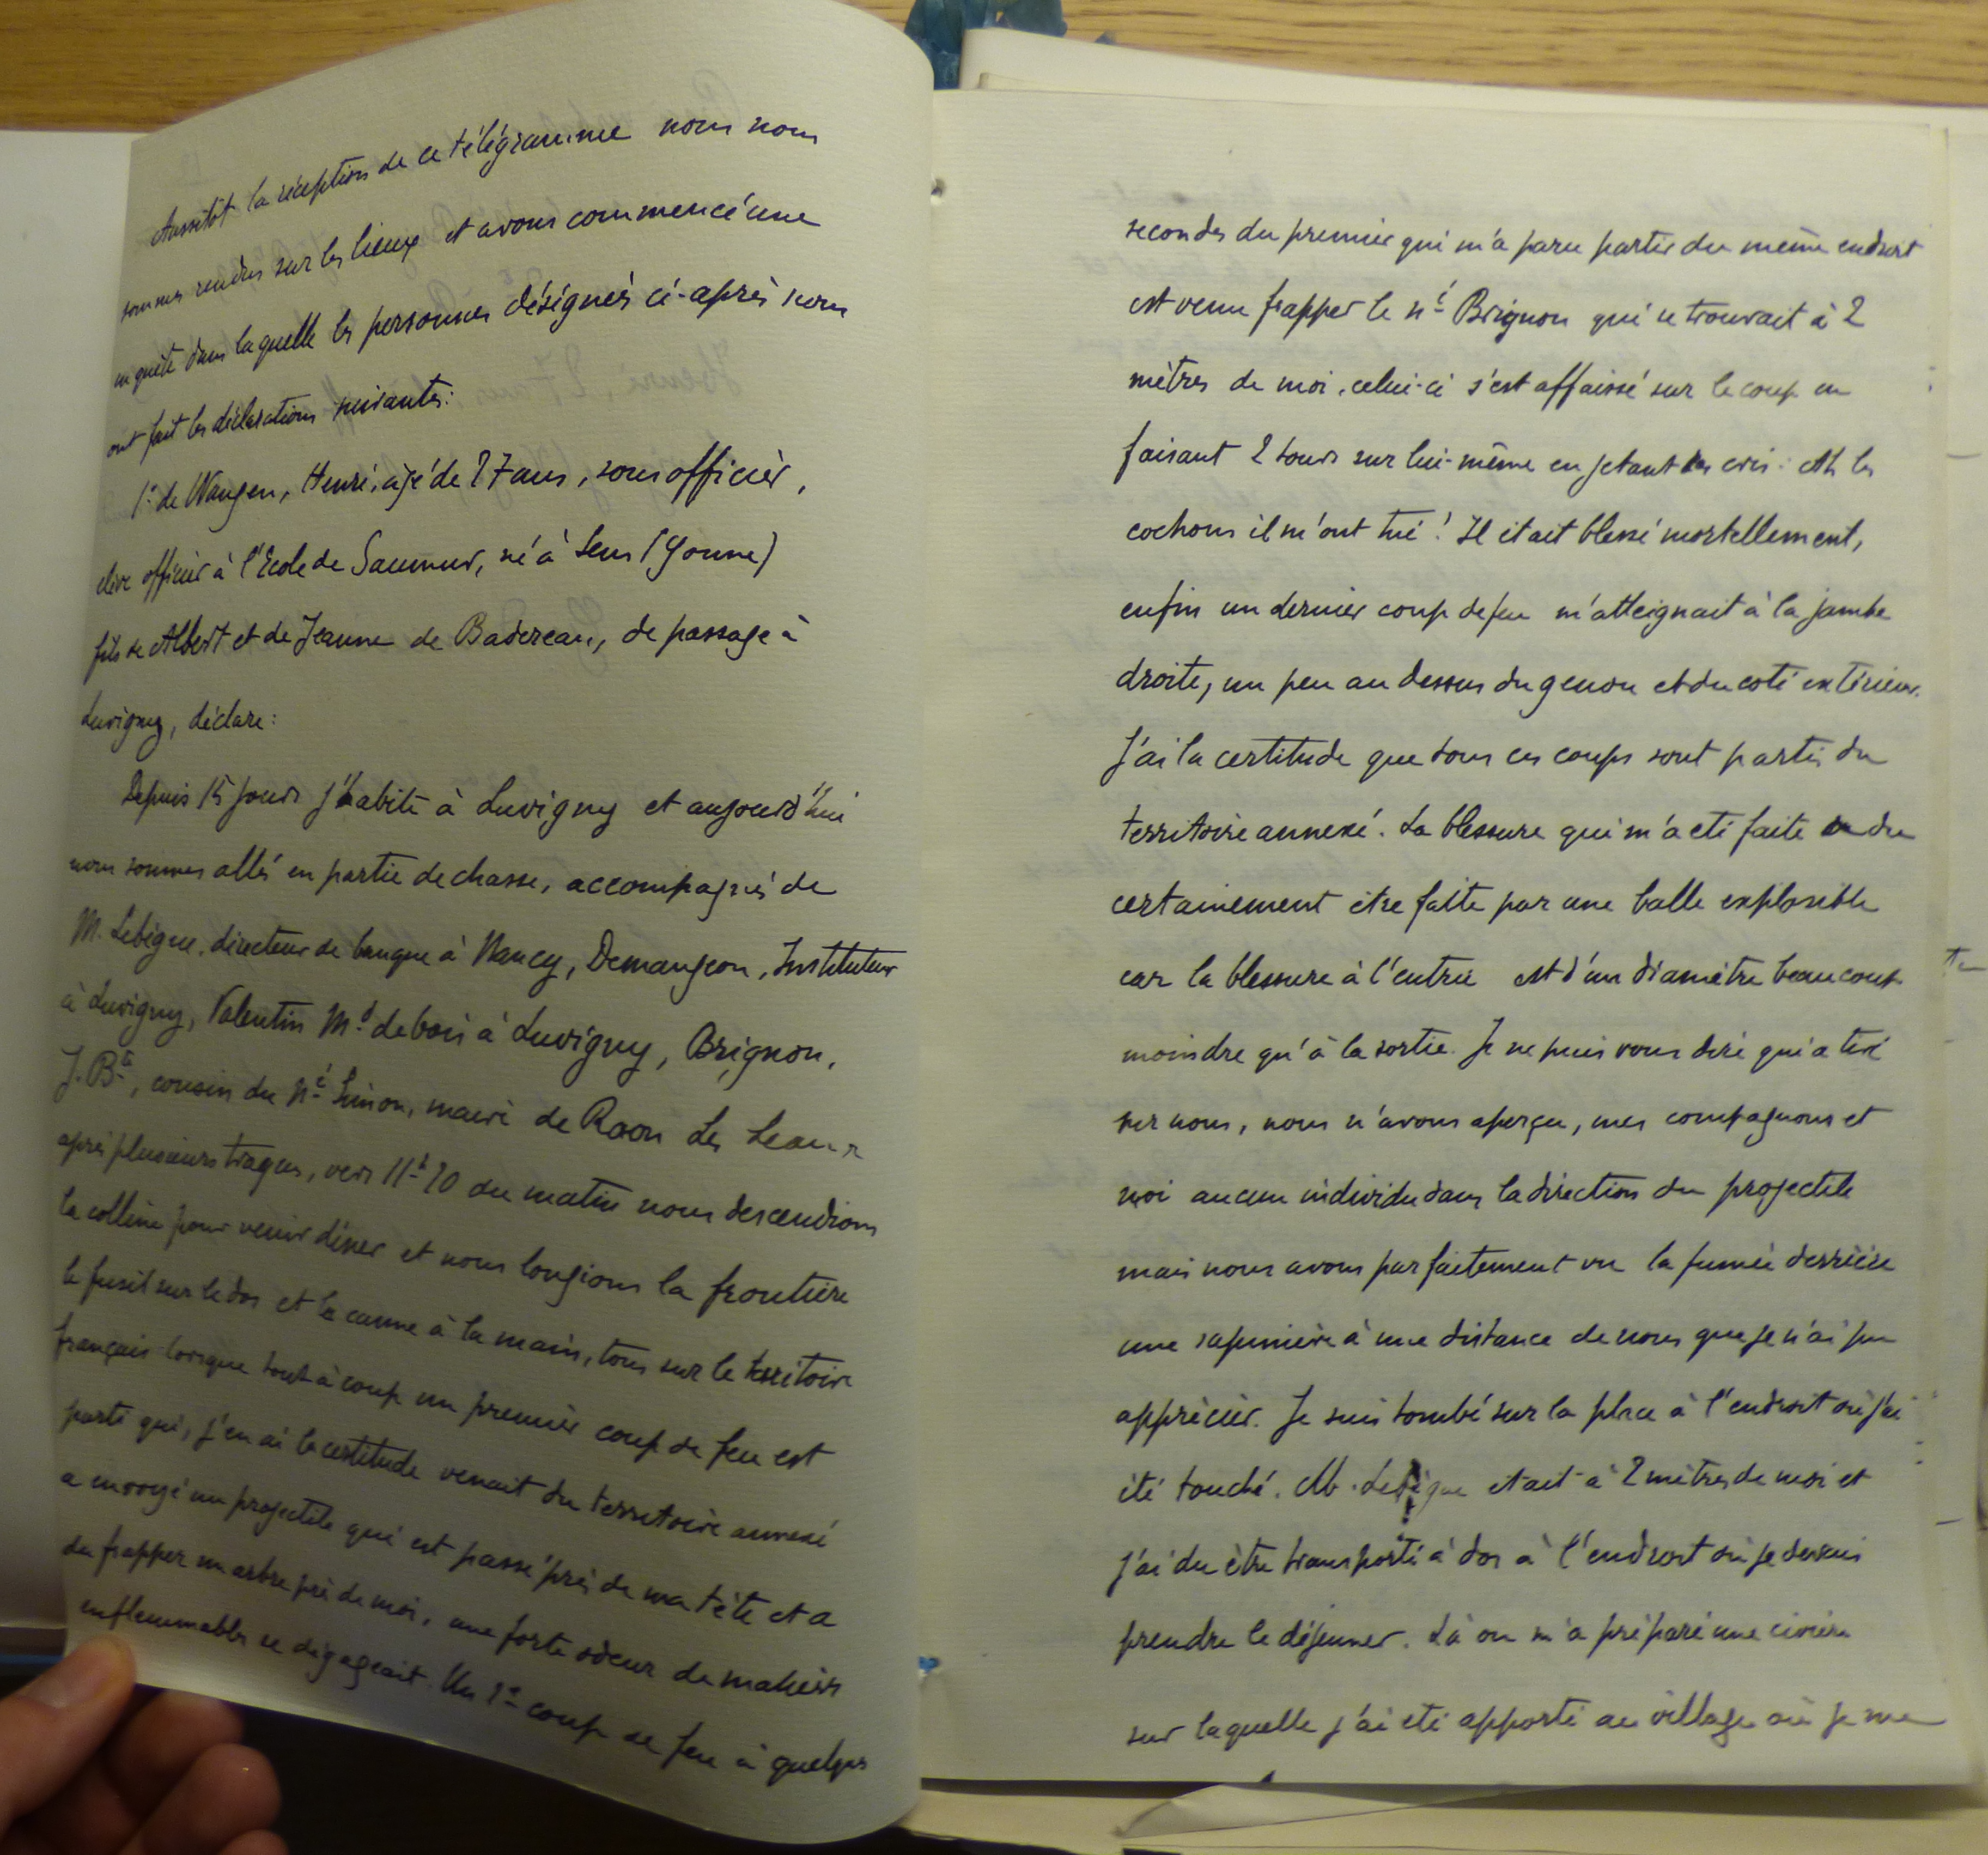 Aussitôt la réception de ce télégramme nous nous
sommes rendus sur les lieux et avons commencé une
enquête dans laquelle les personnes désignées ci-après nous
ont fait les déclarations suivantes:
1º de Wangen, Henri, âgé de 27 ans, sous officier,
élève officier à l'Ecole de Saumur, né à Sens (Yonne)
fils de Albert et de Jeanne de Badereau, de passage à
Luvigny, déclare:
Depuis 15 jours j'habite à Luvigny et aujourd'hui
nous sommes allés en partie de chasse, accompagnés de
M. Lebigue, directeur de banque à Nancy, Demangeon, Instituteur
à Luvigny, Valentin Md de bois à Luvigny, Brignon,
J. Bte, cousin du né Simon, maire de Raon Les Leau
après plusieurs traques, vers 11h 20 du matin nous descendions
la colline pour venir dîner et nous longions la frontière
le fusil sur le dos et la canne à la main, tous sur le territoire
français lorsque tout à coup un premier coup de feu est
parti qui, j'en ai la certitude venait du territoire annexé
a envoyé un projectile qui est passé près de ma tête et a
du frapper un arbre près de moi, une forte odeur de matières
enflammables se dégageait. Un 2e coup de feu à quelques
secondes du premier qui m'a paru partir du même endroit
est venu frapper le né Brignon qui se trouvait à 2
mètres de moi, celui-ci s'est affaissé sur le coup en
faisant 2 tours sur lui-même en jetant les cris: Ah les
cochons il m'ont tué! Il était blessé mortellement,
enfin un dernier coup de feu m'atteignait à la jambe
droite, un peu au dessus du genou et du coté extérieur.
J'ai la certitude que tous ces coups sont partis du
territoire annexé. La blessure qui m'a été faite a du
certainement être faite par une balle explosible
car la blessure à l'entrée est d'un diamètre beaucoup
moindre qu'à la sortie. Je ne puis vous dire qui a tiré
sur nous, nous n'avons aperçu, mes compagnons et
moi aucun individu dans la direction du projectile
mais nous avons parfaitement vu la fumée derrière
une sapinière à une distance de nous que je n'ai pu
apprécier. Je suis tombé sur la place à l'endroit où j'ai
été touché. M. Lebigue était à 2 mètres de moi et
j'ai du être transporté à dos à l'endroit où je devais
prendre le déjeuner. Là on m'a préparé une civière
sur laquelle j'ai été apporté au village où je me